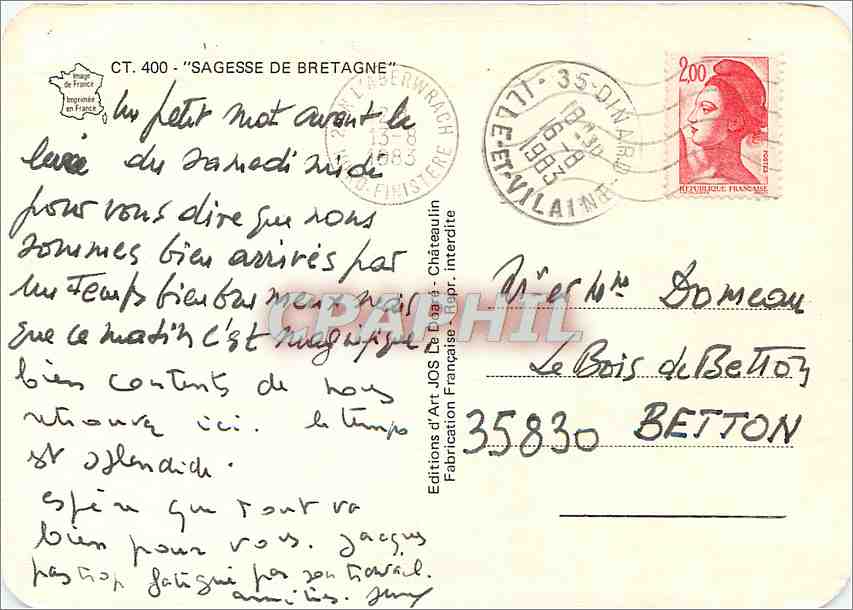 CT. 400 - "SAGESSE DE BRETAGNE"
Image
de France
Imprimée
en France
Un petit mot avant la
levée du samedi midi
pour vous dire que nous
sommes bien arrivés par
un temps bien brumeux mais
que ce matin c'est magnifique.
bien contents de nous
retrouver ici. le temps
est splendide.
espère que tout va
bien pour vous. Jacques
pas trop fatigué par son travail.
amitiés.
L'ABERWRACH
13-8
1983
FINISTERE
35-DINARD
ILLE-ET-VILAINE
18H30
16-8
1983
2,00
POSTES
REPUBLIQUE FRANÇAISE
Editions d'Art JOS Le Doaré - Châteaulin
Fabrication Française - Repr. interdite
CPAPHIL
Mr et Mme Domeau
Le Bois de Betton
35830 BETTON